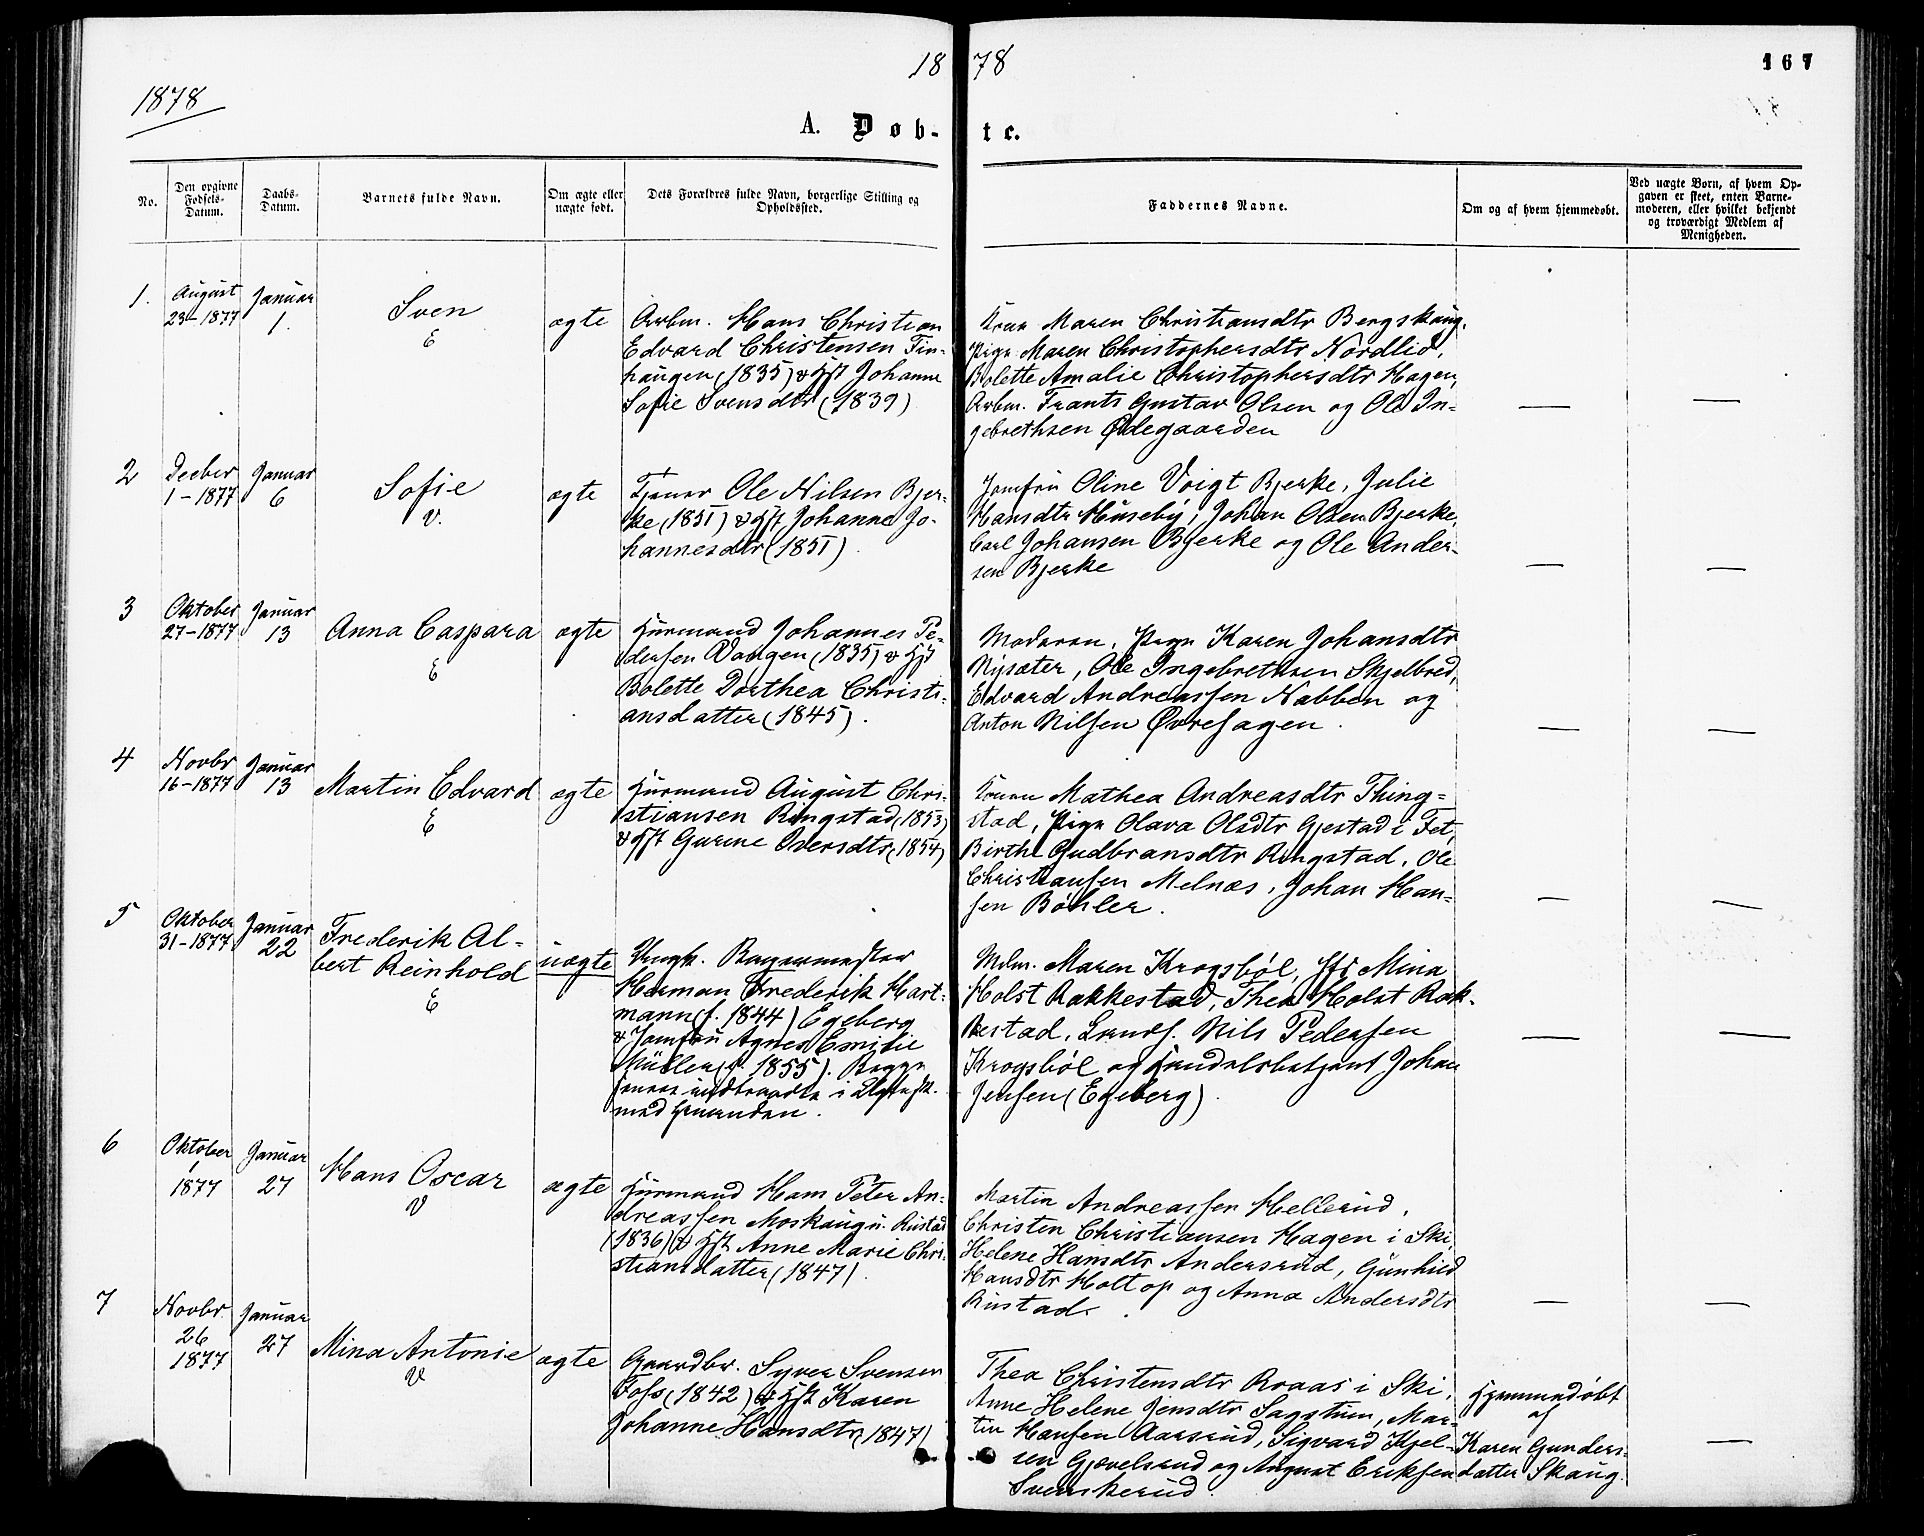 1878
1878
167
A. Døb-te.
No.
Den opgivne Fødsels-Datum.
Daabs-Datum.
Barnets fulde Navn.
Om ægte eller uægte født.
Dets Forældres fulde Navn, borgerlige Stilling og Opholdssted.
Faddernes Navne.
Om og af hvem hjemmedøbt.
Ved uægte Børn, af hvem Opgaven er skeet, enten Barnemoderen, eller hvilket bekjendt og troværdigt Medlem af Menigheden.
1.
August
23-1877
Januar
1.
Sven
E
ægte
Arbm. Hans Christian
Edvard Christensen Fin-
haugen (1835) & Hst Johanne
Sofie Svensdtr (1839)
Kone Maren Christiansdtr Bergskaug,
Pige Maren Christophersdtr Nordlid,
Bolette Amalie Christophersdtr Hagen,
Arbm. Frants Gustav Olsen og Ole In-
gebrethsen Ødegaarden
2
Decbr
1-1877
Januar
6
Sofie
V.
ægte
Tjener Ole Nilsen Bjer-
ke (1851) & Hst Johanne Jo-
hannesdtr (1851).
Jomfru Oline Voigt Bjerke, Julie
Hansdtr Huseby, Johan Olsen Bjerke,
Carl Johansen Bjerke og Ole Ander-
sen Bjerke
3
Oktober
27-1877
Januar
13
Anna Caspara
E
ægte
Husmand Johannes Pe-
dersen Vangen (1835) & Hst
Bolette Dorthea Christi-
ansdatter (1845).
Moderen, Pige Karen Johansdtr
Nysæter, Ole Ingebrethsen Skjelbred,
Edvard Andreassen Nabben og
Anton Nilsen Øvresagen.
4
Novbr
16-1877
Januar
13
Martin Edvard
E
ægte
Husmand August Chri-
stiansen Ringstad (1853)
& Hst Gurine Iversdtr (1854)
Konen Mathea Andreasdtr Thing-
stad, Pige Olava Olsdtr Gjestad i Fet,
Birthe Gudbransdtr Ringstad, Ole
Christiansen Melnæs, Johan Han-
sen Bøhler.
5
Oktober
31-1877
Januar
22
Frederik Al-
bert Reinhold
E
uægte
Ungk. Bagermester
Herman Frederik Hart-
mann (f. 1844) Egeberg
& Jomfru Agnes Emilie
Müller (f. 1855). Begge
senere indtraadte i Ægtesk.
med hinanden.
Mdm. Maren Krogsbøl, Jfr Mina
Holst Rakkestad, Thea Holst Rak-
kestad, Nils Pedersen
Krogsbøl og Handelsbetjent Johan
Jensen (Egeberg).
6
Oktober
1
1877
Januar
27
Hans Oscar
V
ægte
Husmand Hans Peter An-
dreassen Moskaug u. Rustad
(1836) & Hst Anne Marie Chri-
stiansdatter (1847).
Martin Andreassen Hellerud,
Christen Christiansen Hagen i Ski,
Helene Hansdtr Andersrud, Gunhild
Hansdtr Holtop og Anna Andersdtr
Rustad.
7
Novbr.
26
1877
Januar
27
Mina Antonie
V
ægte
Gaardbr. Syver Svensen
Foss (1842) & Hst Karen
Johanne Hansdtr (1847)
Thea Christensdtr Raaas i Ski,
Anne Helene Jensdtr Sagstuen, Mar-
tin Hansen Aarsrud, Sigvard Kjel-
sen Gjævelsrud og August Eriksen
Svenskerud.
Hjemmedøbt
af
Karen Gunders-
datter Skaug.